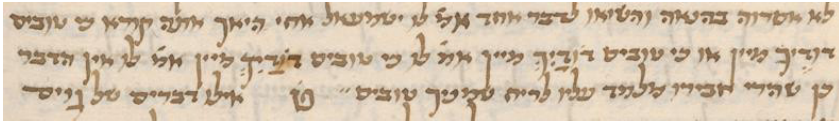 לא אסרוה בהנאה והשיאו לדבר אחר אמ׳ לו ישמעאל אחי היאך אתה קורא כי טובים
דודיך מיין או כי טובים דודיך מיין אמ׳ לו כי טובים דודיך מיין אמ׳ לו אין הדבר
כן שהרי חבירו מלמד עליו לריח שמניך טובים׳׳ מת׳ אילו דברים של גוים